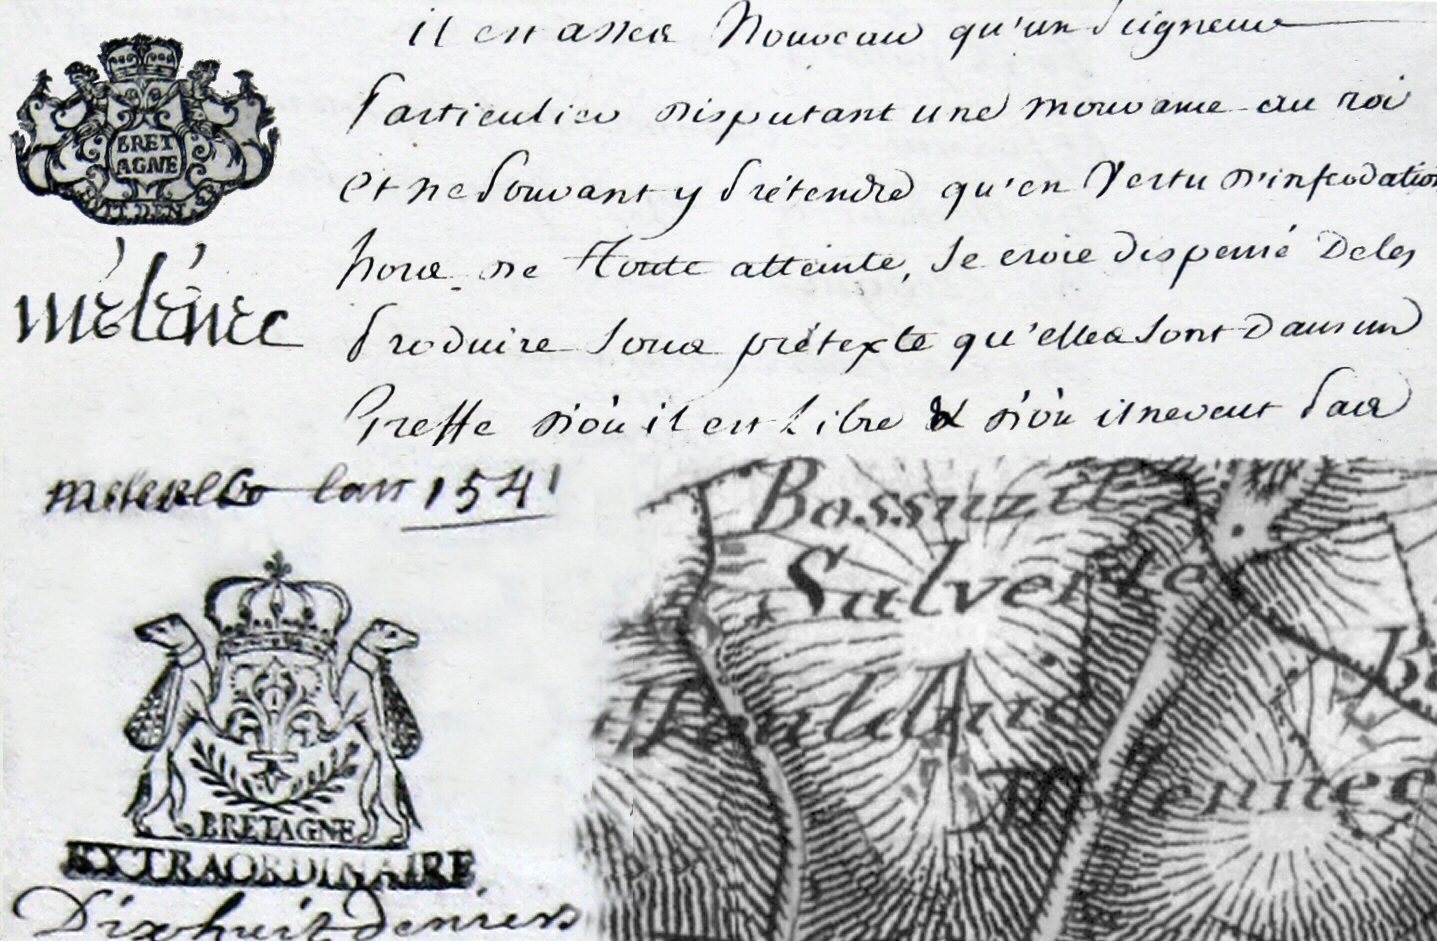 il est assés Nouveau qu'un Seigneur
Particulier disputant une mouvance au roi
et ne Pouvant y Prétendre qu'en Vertu d'infeodation
hors de Toute atteinte, se croie dispensé De les
BRET
AGNE
mélénec
Produire sous prétexte qu'elles sont Dans un
Greffe d'où il est Libre & d'où il ne veut Pas
lan 1541
Bossuzil
Salvertes
BRETAGNE
EXTRAORDINAIRE
Dixhuit deniers
Melennec